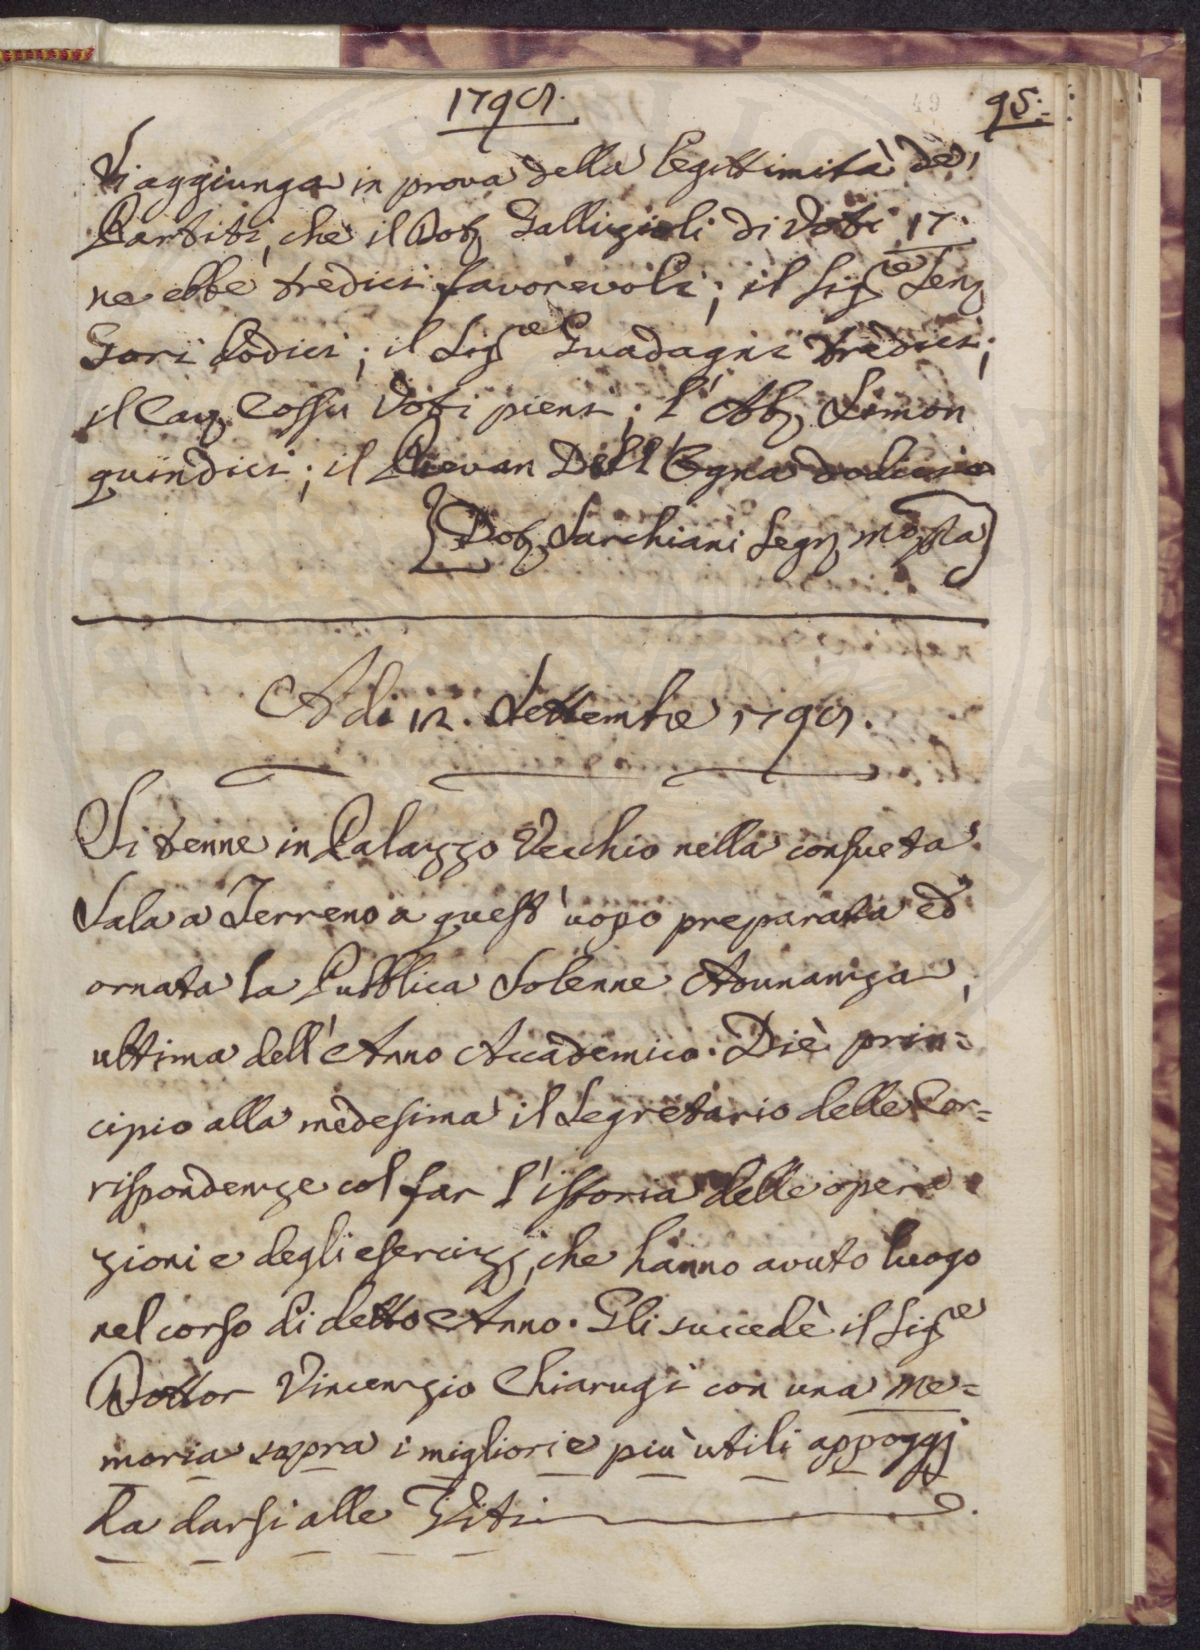 1792.
49
95.
Si aggiunga in prova della legittimità de'
Partiti, che il Dot. Gallizioli di voti 17.
ne ebbe tredici favorevoli; il Sig.re Sen.
Gori dodici; il Sig.re Guadagni tredici;
il Cav. Cossu voti pieni; l'Ab. Simon
quindici; il Pievan Dell'Ogna dodici
Dot. Sarchiani Segr.
Adi 12. Settembre 1792.
Si tenne in Palazzo Vecchio nella consueta
Sala a Terreno a quest'uopo preparata ed
ornata la Pubblica Solenne Adunanza,
ultima dell'Anno Accademico. Diè prin=
cipio alla medesima il Segretario delle Cor=
rispondenze col far l'istoria delle opera
zioni e degli esercizj, che hanno avuto luogo
nel corso di detto Anno. Gli succedè il Sig.re
Dottor Vincenzio Chiarugi con una me=
moria sopra i migliori e più utili appoggj
da darsi alle Viti.